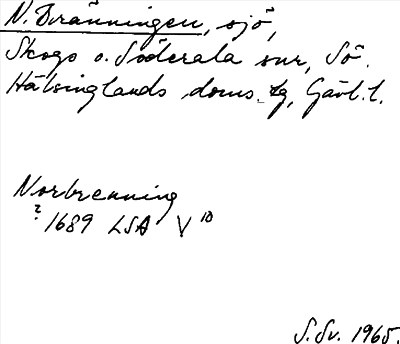 N. Bränningen, sjö,
Skogs o. Söderala snr, Sö.
Hälsinglands doms.-tg, Gävl. l.
Norbrenning
? 1689 LSA V 10
S. Sv. 1965.